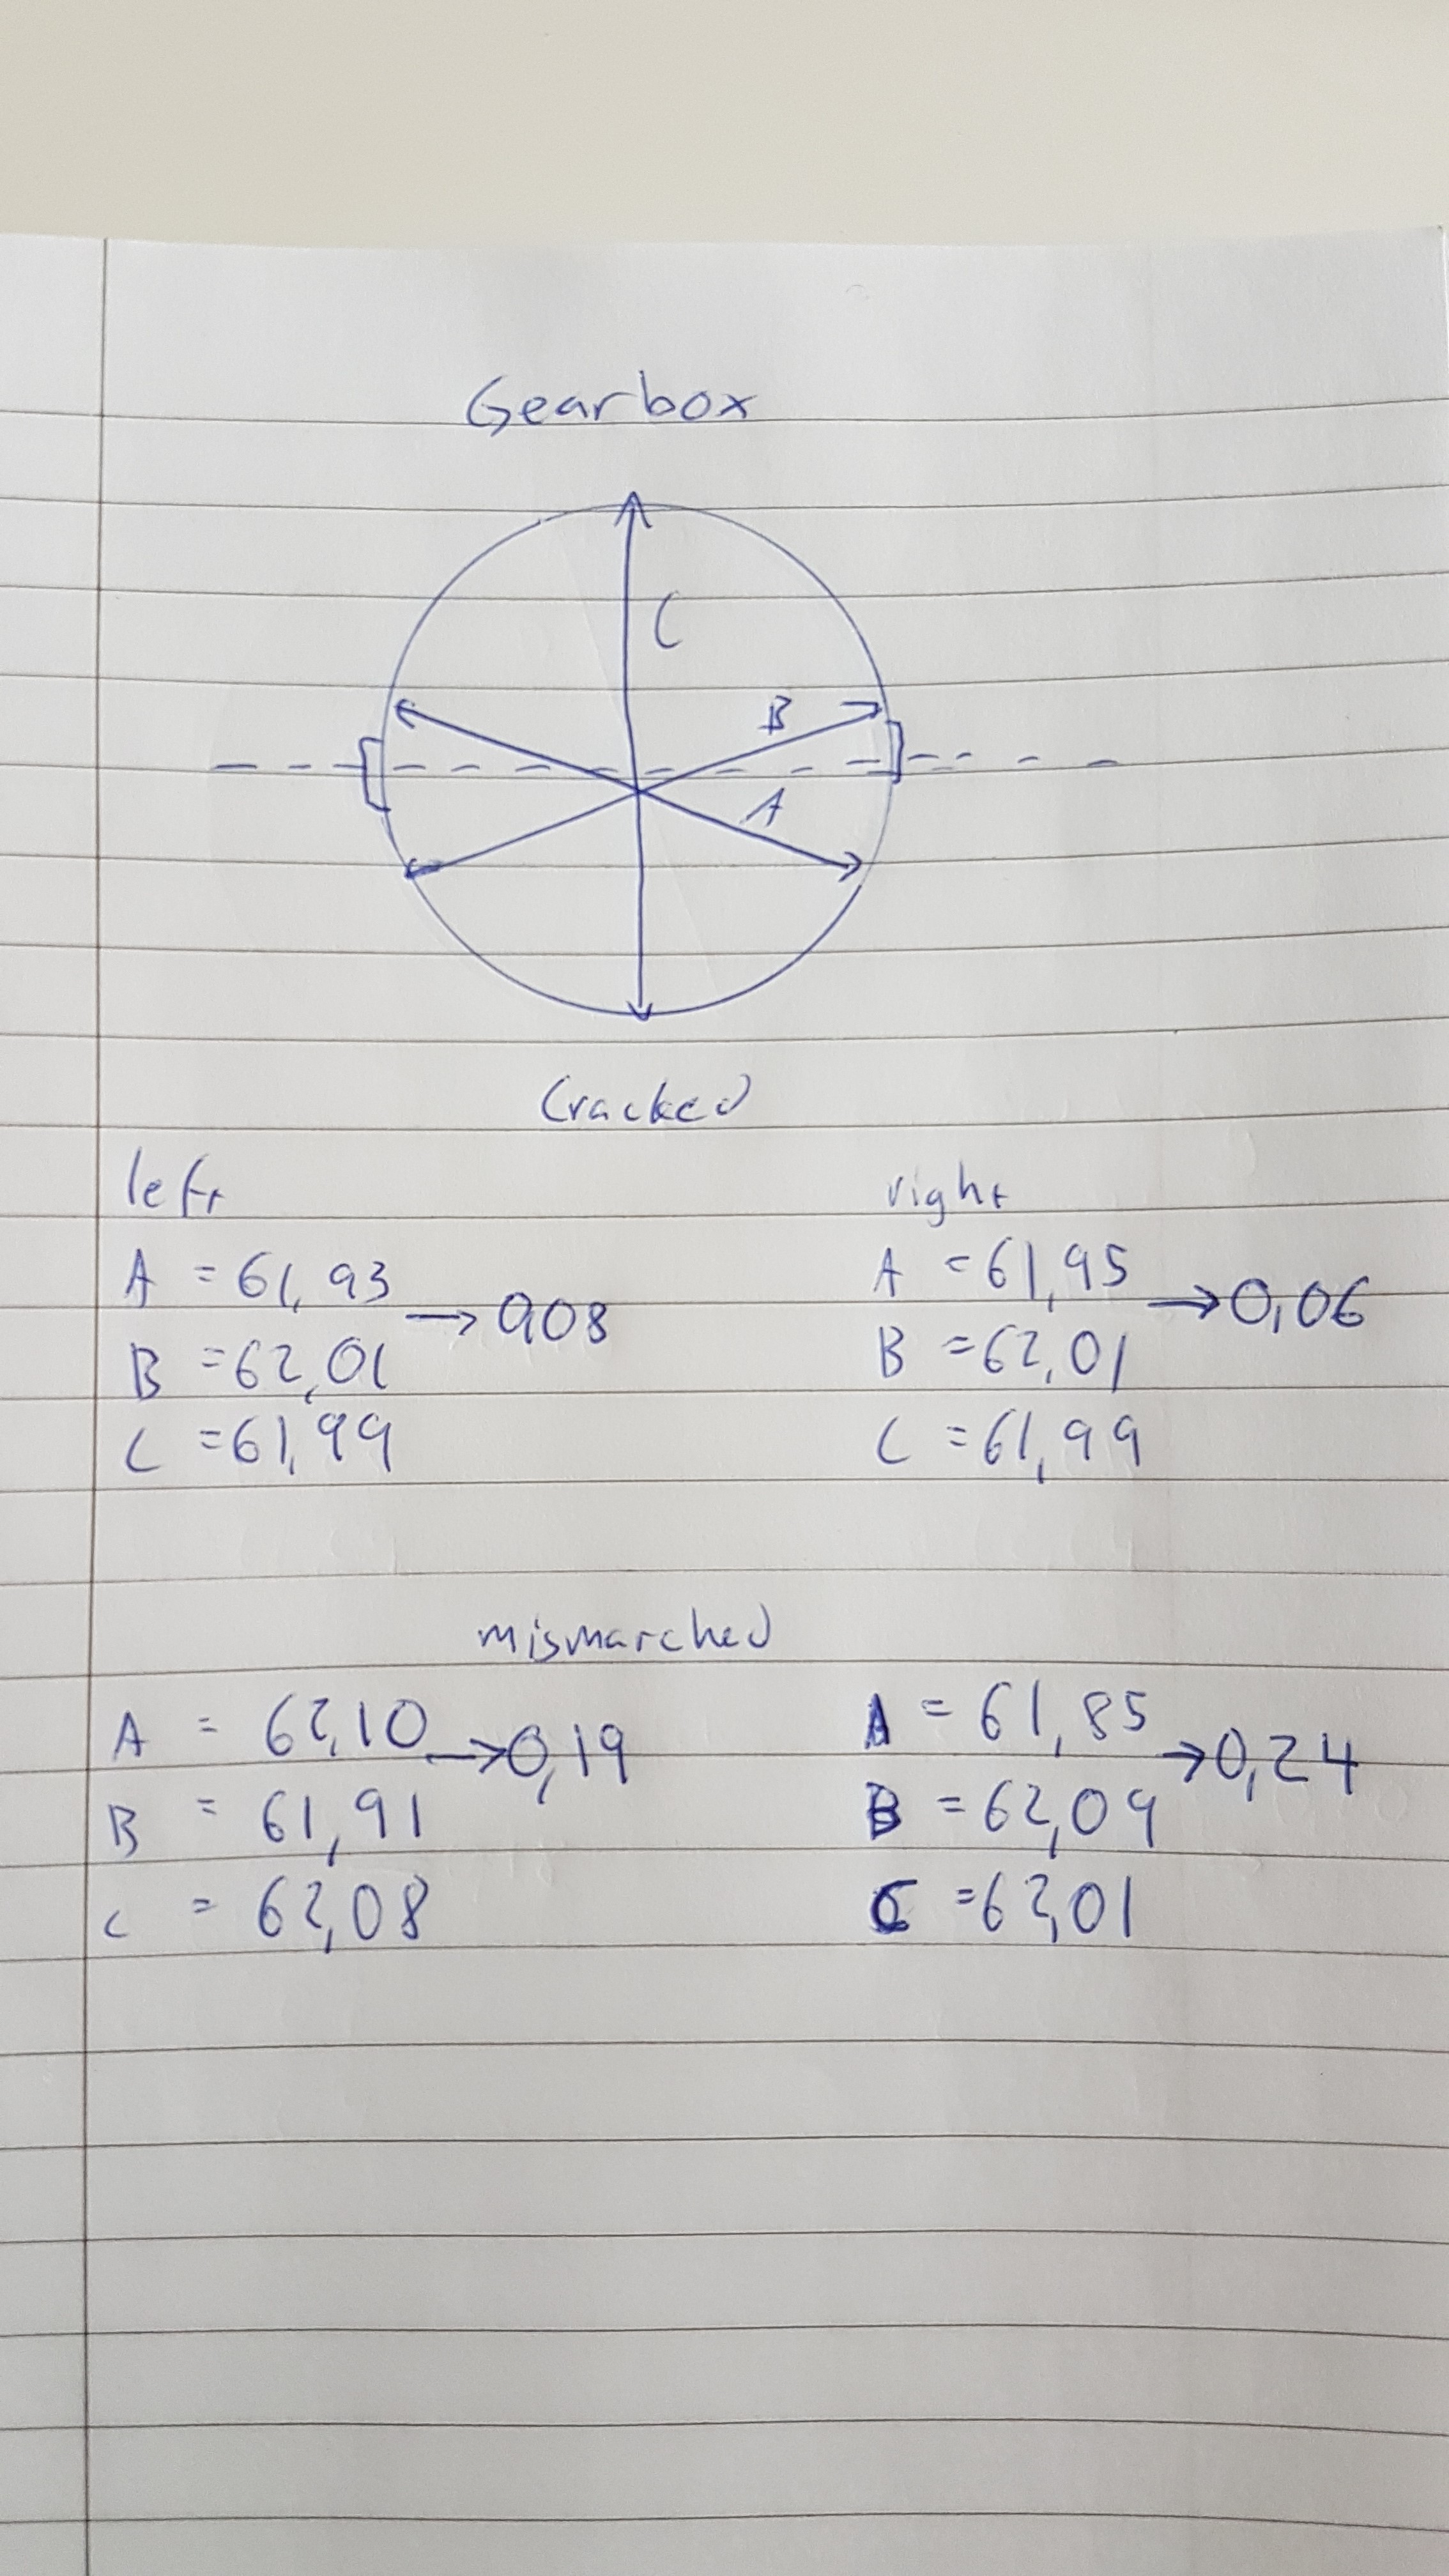 Gearbox
C
B
A
Cracked
left right
A = 61,93 → 0,08 A = 61,95 → 0,06
B = 62,01 B = 62,01
C = 61,99 C = 61,99
mismatched
A = 62,10 → 0,19 A = 61,85 → 0,24
B = 61,91 B = 62,09
C = 62,08 C = 62,01